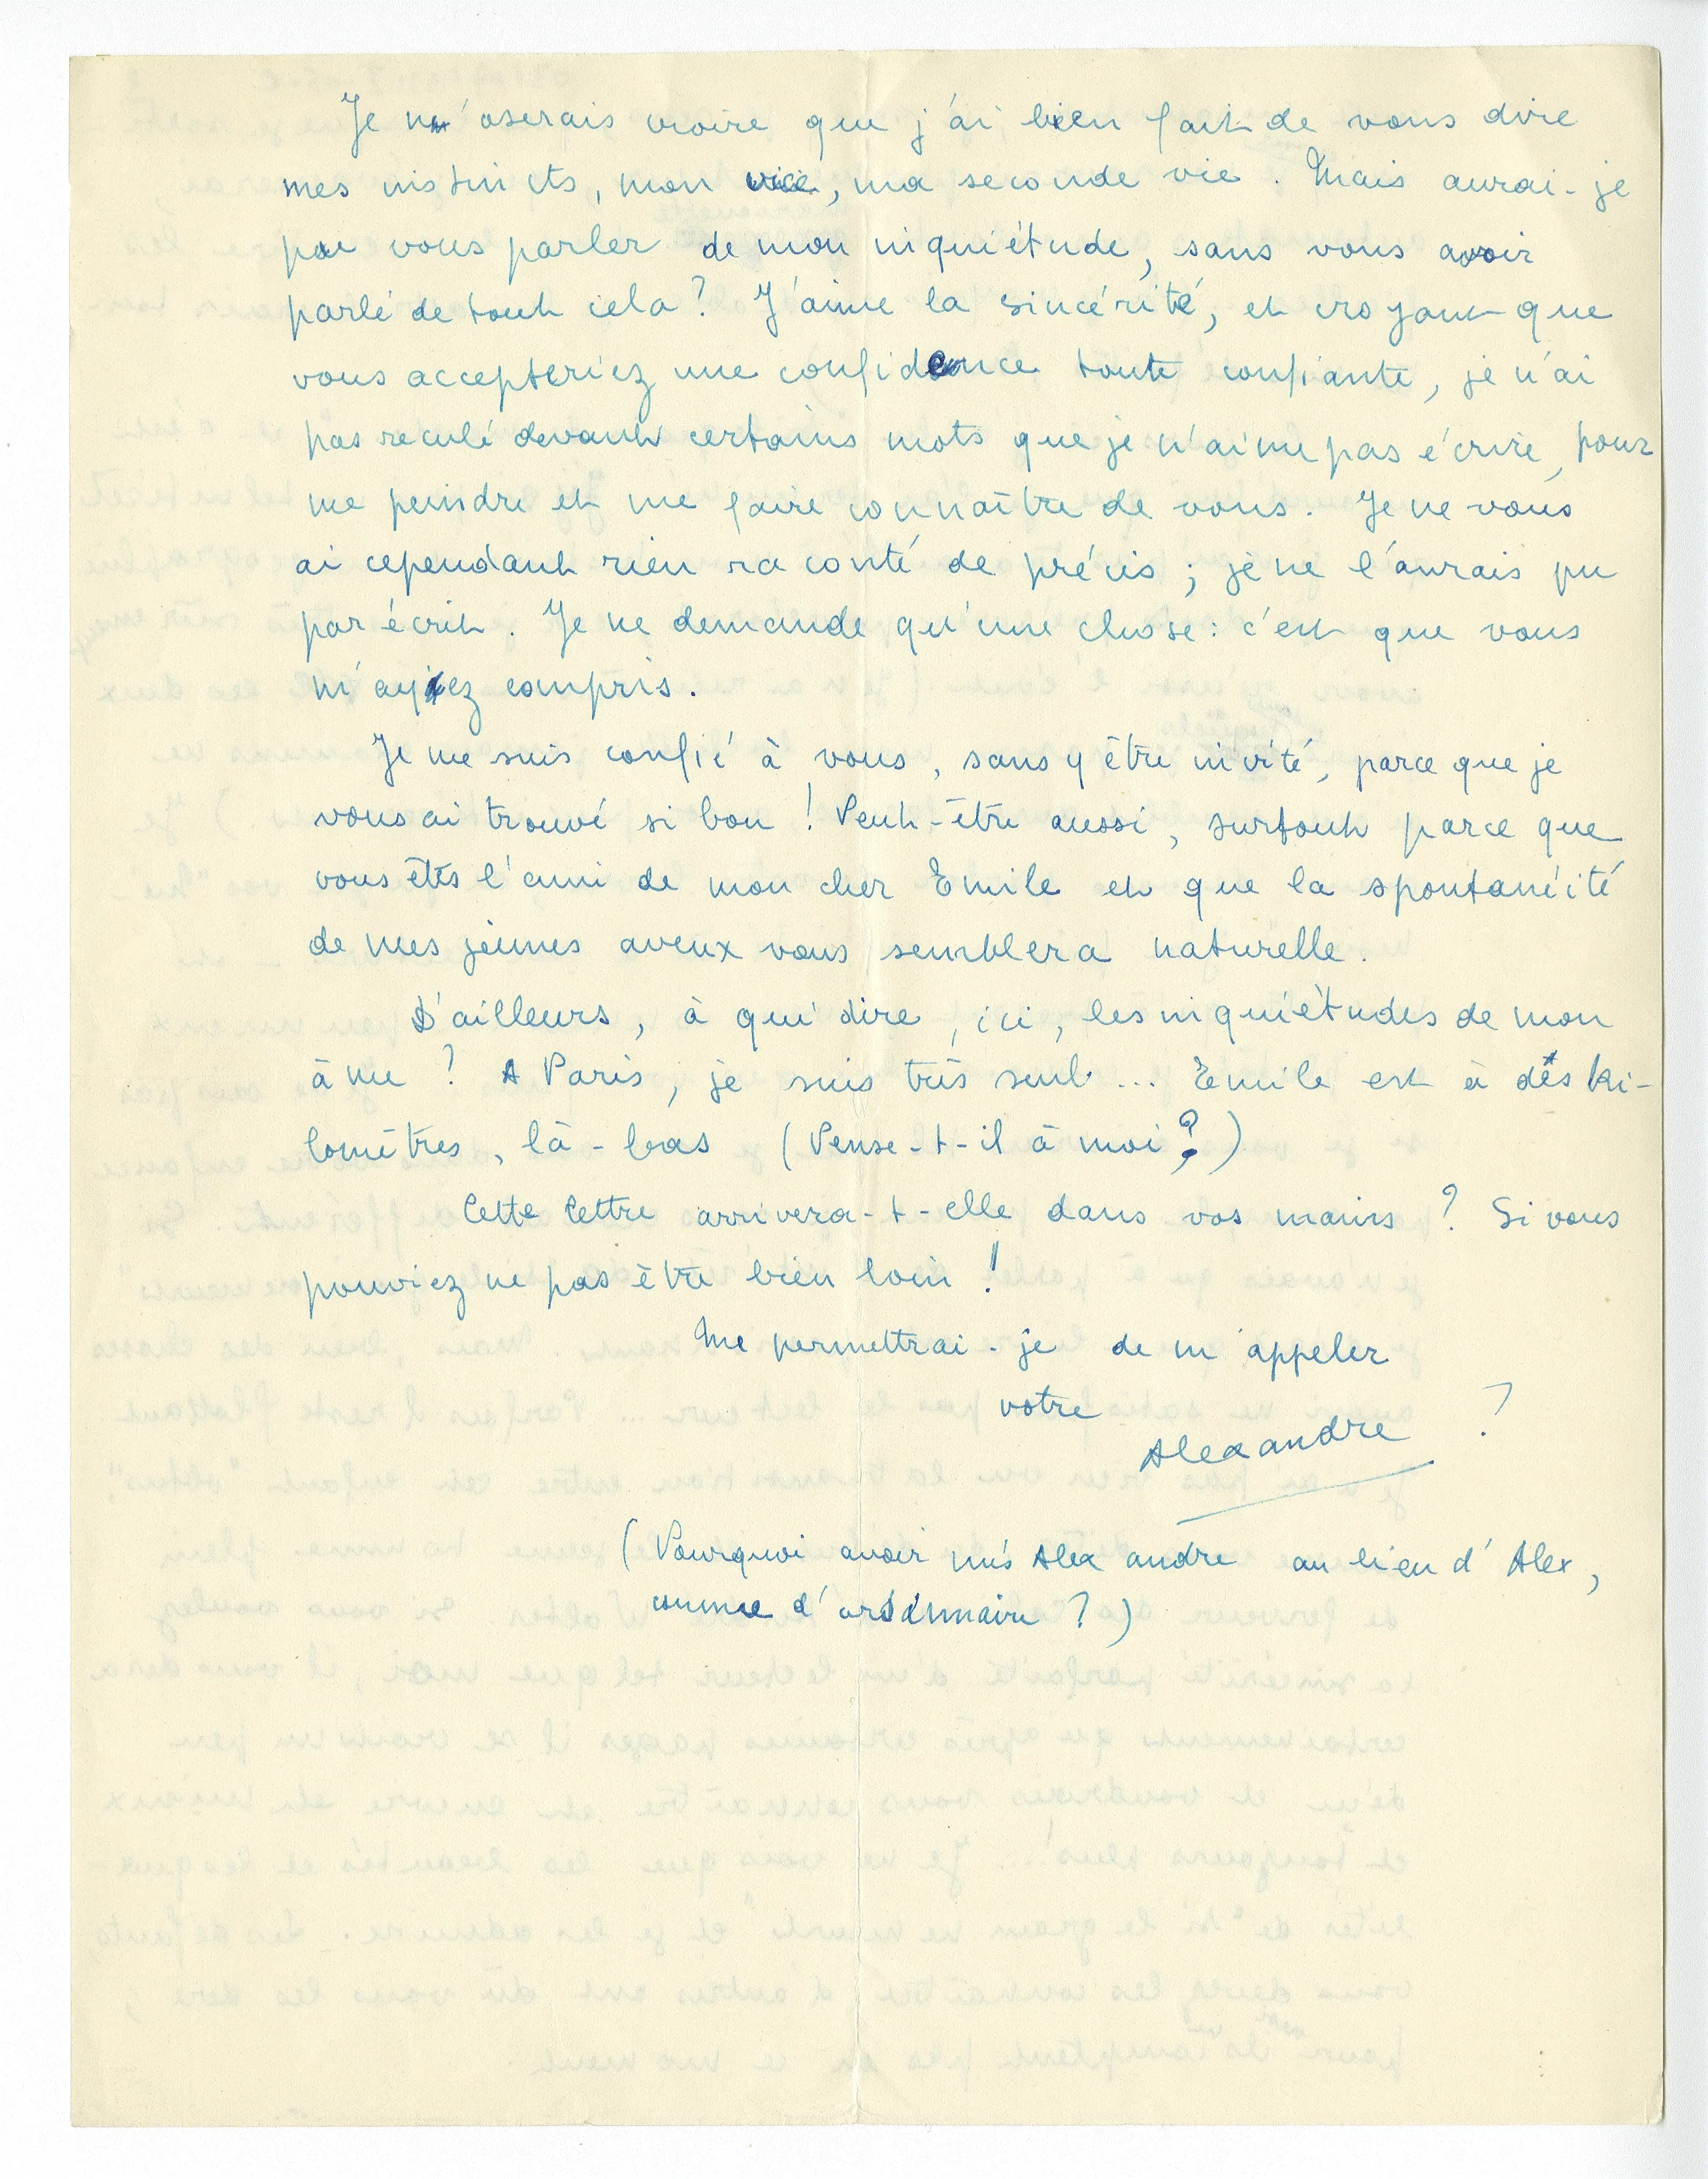 Je n'oserais croire que j'ai bien fait de vous dire
mes instincts, mon vice, ma seconde vie. Mais aurai-je
pu vous parler de mon inquiétude, sans vous avoir
parlé de tout cela? J'aime la sincérité, et croyant que
vous accepteriez une confidence toute confiante, je n'ai
pas reculé devant certains mots que je n'aime pas écrire, pour
me peindre et me faire connaître de vous. Je ne vous
ai cependant rien raconté de précis; je ne l'aurais pu
par écrit. Je ne demande qu'une chose: c'est que vous
m'ayiez compris.
Je me suis confié à vous, sans y être invité, parce que je
vous ai trouvé si bon! Peut-être aussi, surtout parce que
vous êtes l'ami de mon cher Emile et que la spontanéité
de mes jeunes aveux vous semblera naturelle.
D'ailleurs, à qui dire, ici, les inquiétudes de mon
âme? A Paris, je suis très seul... Emile est à des ki-
lomètres, là-bas (Pense-t-il à moi?)
Cette lettre arrivera-t-elle dans vos mains? Si vous
pouviez ne pas être bien loin!
Me permettrai-je de m'appeler
votre
Alexandre ?
(Pourquoi avoir mis Alexandre au lieu d'Alex,
comme d'ordinaire?)